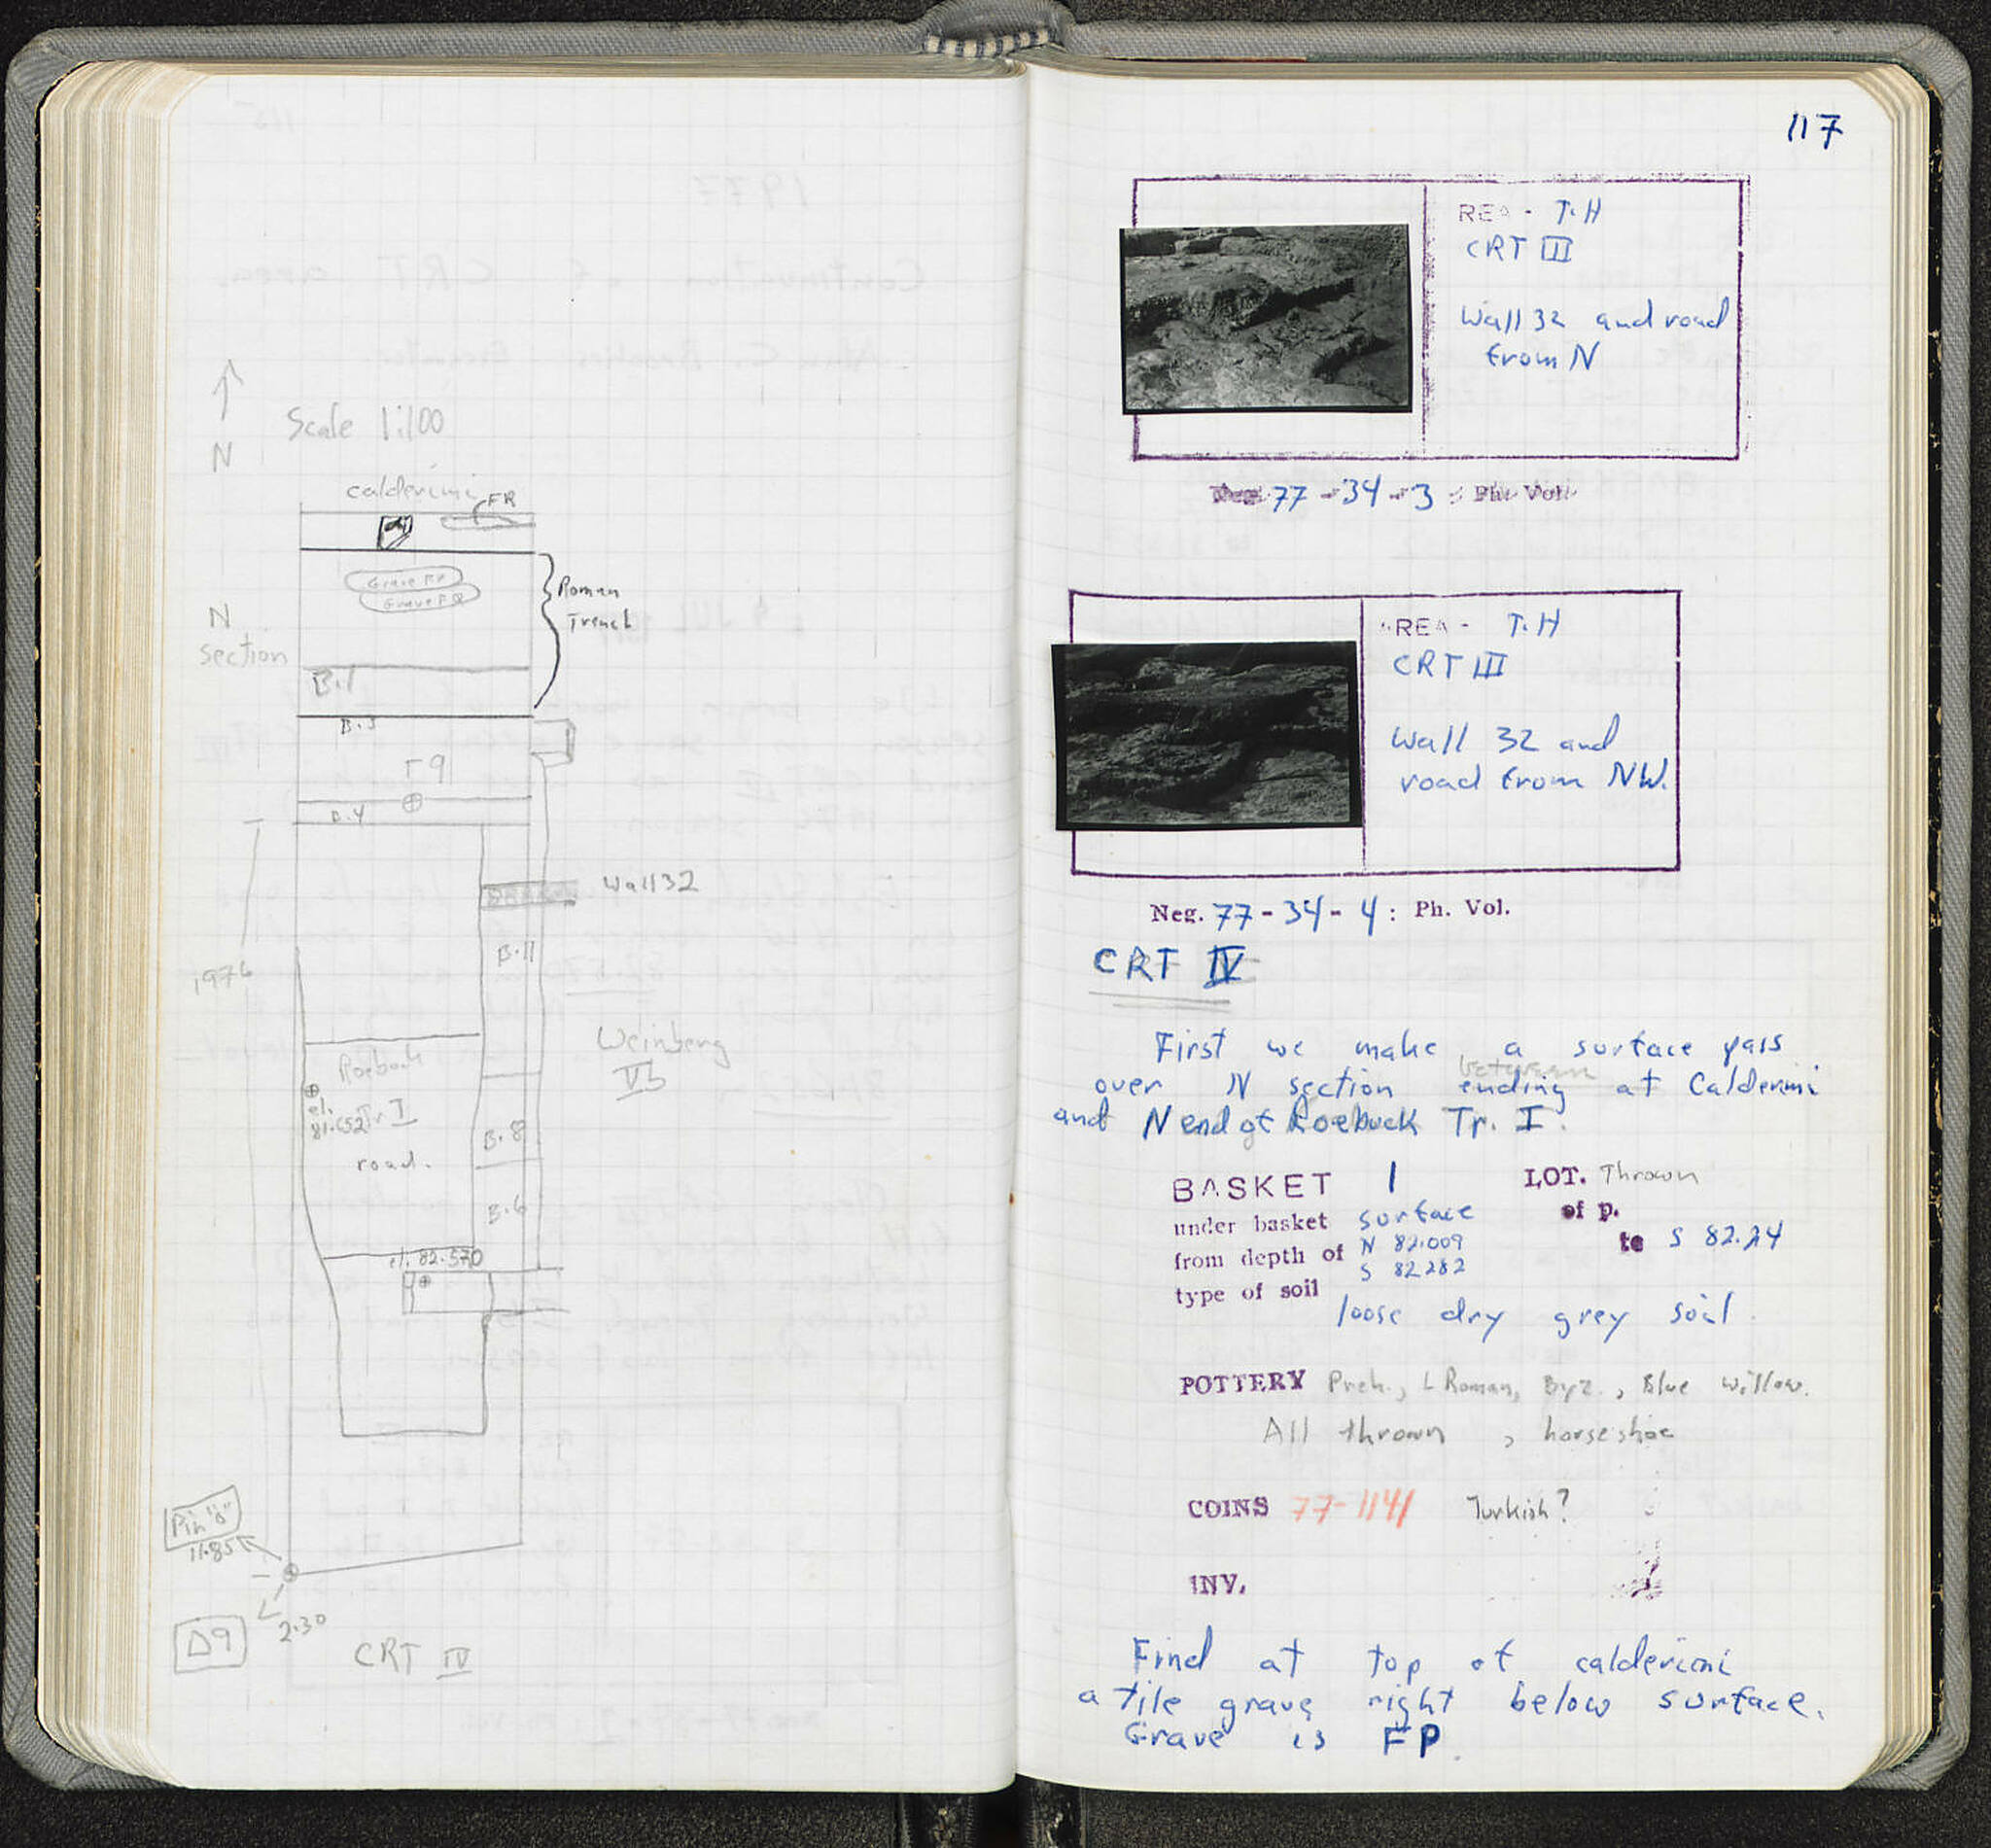 N
Scale 1:100
calderimi
FR
Grave FP
Grave FQ
Roman
Trench
N
section
B.1
B.3
B.4
Wall 32
B.11
1976
Weinberg
Vb
Roebuck
el.
81.652 Tr I
road.
B.8
B.6
el. 82.570
Pin "8"
11.85
2.30
Δ9
CRT IV
117
REA - T.H
CRT III
Wall 32 and road
from N
Neg. 77 - 34 - 3 : Ph. Vol.
AREA - T.H
CRT III
Wall 32 and
road from NW.
Neg. 77 - 34 - 4 : Ph. Vol.
CRT IV
First we make a surface pass
between
over N section ending at Calderimi
and N end of Roebuck Tr. I.
BASKET 1 LOT. Thrown
under basket surface of p.
from depth of N 82.009 to S 82.24
S 82.282
type of soil
loose dry grey soil
POTTERY Preh., L Roman, Byz., Blue Willow.
All thrown , horseshoe
COINS 77-1141 Turkish?
INV.
Find at top of calderimi
a tile grave right below surface.
Grave is FP.